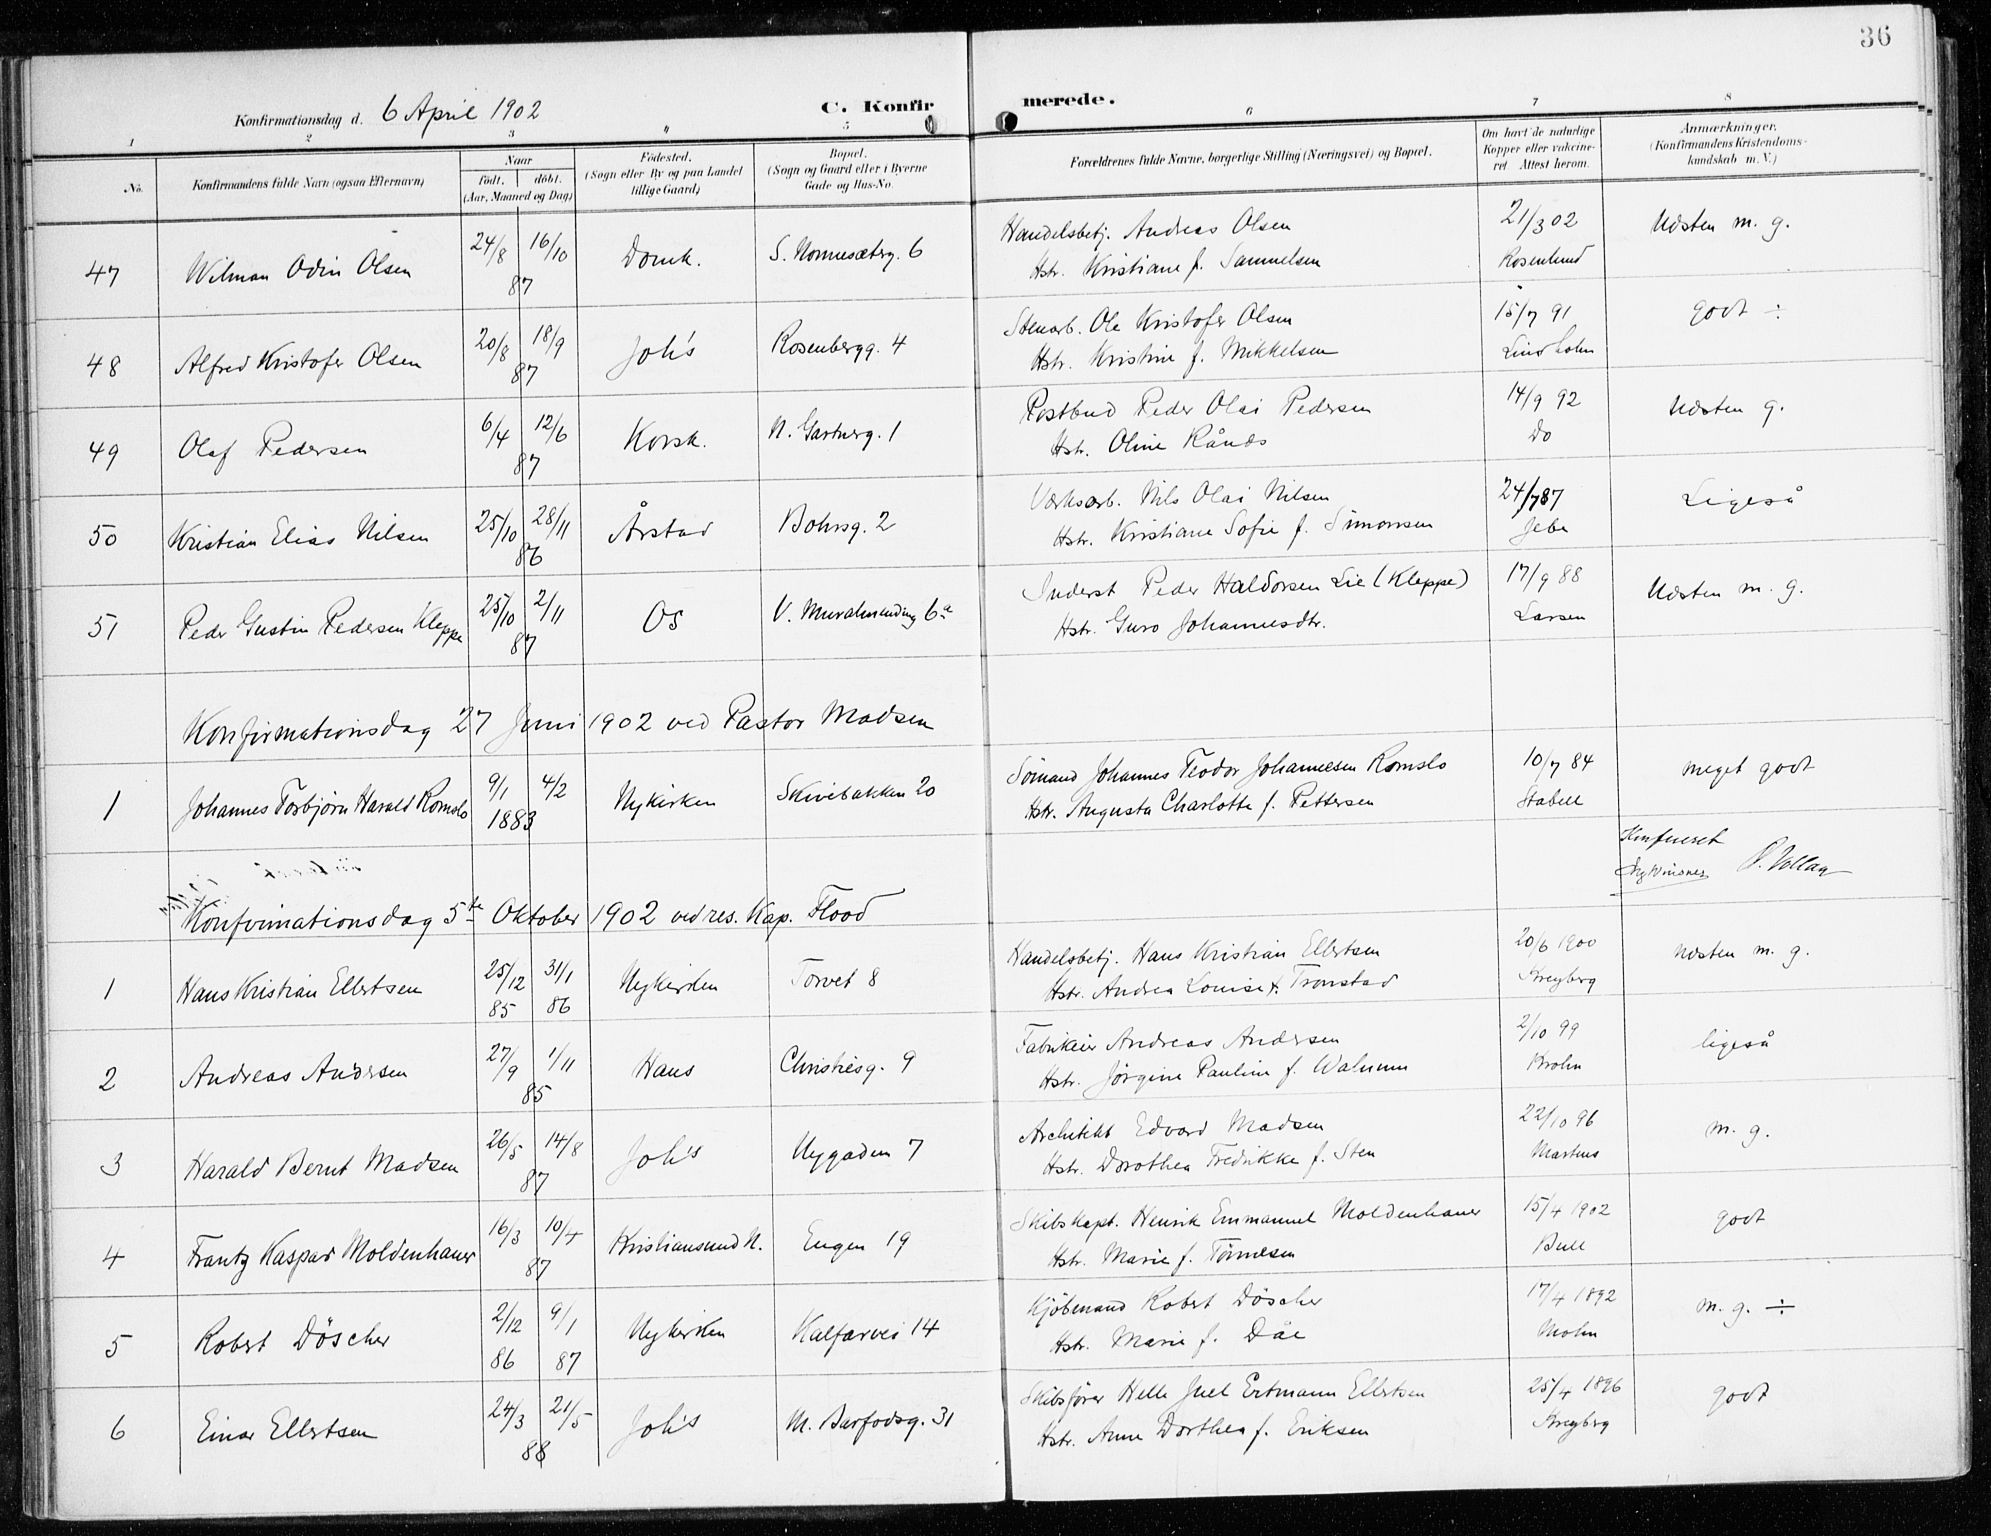 36
Konfirmationsdag d. 6 April 1902
C. Konfir
merede.
1 2 3 4 5 6 7 8
No.
Konfirmandens fulde Navn (ogsaa Efternavn)
Naar
Født. døbt.
(Aar, Maaned og Dag)
Fødested.
(Sogn eller By og paa Landet
tillige Gaard)
Bopæl.
(Sogn og Gaard eller i Byerne
Gade og Hus-No.
Forældrenes fulde Navne, borgerlige Stilling (Næringsvei) og Bopæl.
Om havt de naturlige
Kopper eller vakcine-
ret Attest herom.
Anmærkninger.
(Konfirmandens Kristendoms-
kundskab m.V.)
47 Wilman Odin Olsen 24/8 16/10 87 Domk. 6
Handelsbetj. Andreas Olsen
Hstr. Kristiane f. Samuelsen
21/3 02
Rosenlund
Næsten m. g.
48 Alfred Kristofer Olsen 20/8 18/9 87 Joh's Rosenbergg. 4
Stenarb. Ole Kristofer Olsen
Hstr. Kristine f. Mikkelsen
15/7 91
Lindholm
godt ÷
49 Olaf Pedersen 6/4 12/6 87 Korsk. N. Gartnerg. 1
Postbud Peder Olai Pedersen
Hstr. Oline Rånås
14/9 92
Do
Næsten g.
50 Kristian Elias Nilsen 25/10 28/11 86 Årstad Bohrsg. 2
Værksarb. Nils Olai Nilsen
Hstr. Kristiane Sofie f. Simonsen
24/7 87
Jebe
Ligeså
51 Peder Gustin Pedersen Kleppe 25/10 2/11 87 Os V. Muralmending 6a
Inderst Peder Haldorsen Lie (Kleppe)
Hstr. Guro Johannesdtr.
17/9 88
Larsen
Næsten m. g.
Konfirmationsdag 27 Juni 1902 ved Pastor Madsen
1 Johannes Torbjørn Harald Romslo 9/1 4/2 1883 Nykirken Skivebakken 20
Sømand Johannes Teodor Johannesen Romslo
Hstr. Augusta Charlotte f. Pettersen
10/7 84
Stabell
meget godt
Konfereret
Konfirmationsdag 5te Oktober 1902 ved res. Kap. Flood
1 Hans Kristian Ellertsen 25/12 85 31/1 86 Nykirken Torvet 8
Handelsbetj. Hans Kristian Ellertsen
Hstr. Andrea Louise f. Tronstad
20/6 1900
Kreyberg
næsten m. g.
2 Andreas Andersen 27/9 1/11 85 Hans Christiesg. 9
Fabrikeier Andreas Andersen
Hstr. Jørgine Pauline f. Walnum
2/10 99
Krohn
ligeså
3 Harald Bernt Madsen 26/5 14/8 87 Joh's Nygaden 7
Architekt Edvard Madsen
Hstr. Dorothea Fredrikke f. Sten
22/10 96
Martens
m. g.
4 Frantz Kaspar Moldenhauer 16/3 10/4 87 Kristiansund N. Engen 19
Skibskapt. Henrik Emmanuel Moldenhauer
Hstr. Marie f. Tønnesen
15/4 1902
Bull
godt
5 Robert Döscher 2/12 86 9/1 87 Nykirken Kalfarvei 14
Kjöbmand Robert Döscher
Hstr. Marie f. Dåe
17/4 1892
Mohn
m. g. ÷
6 Einar Ellertsen 24/3 21/5 88 Joh's M. Barfodsg. 31
Skibsförer Helle Juel Ertmann Ellertsen
Hstr. Anne Dorthea f. Eriksen
25/4 1896
Kreyberg
godt